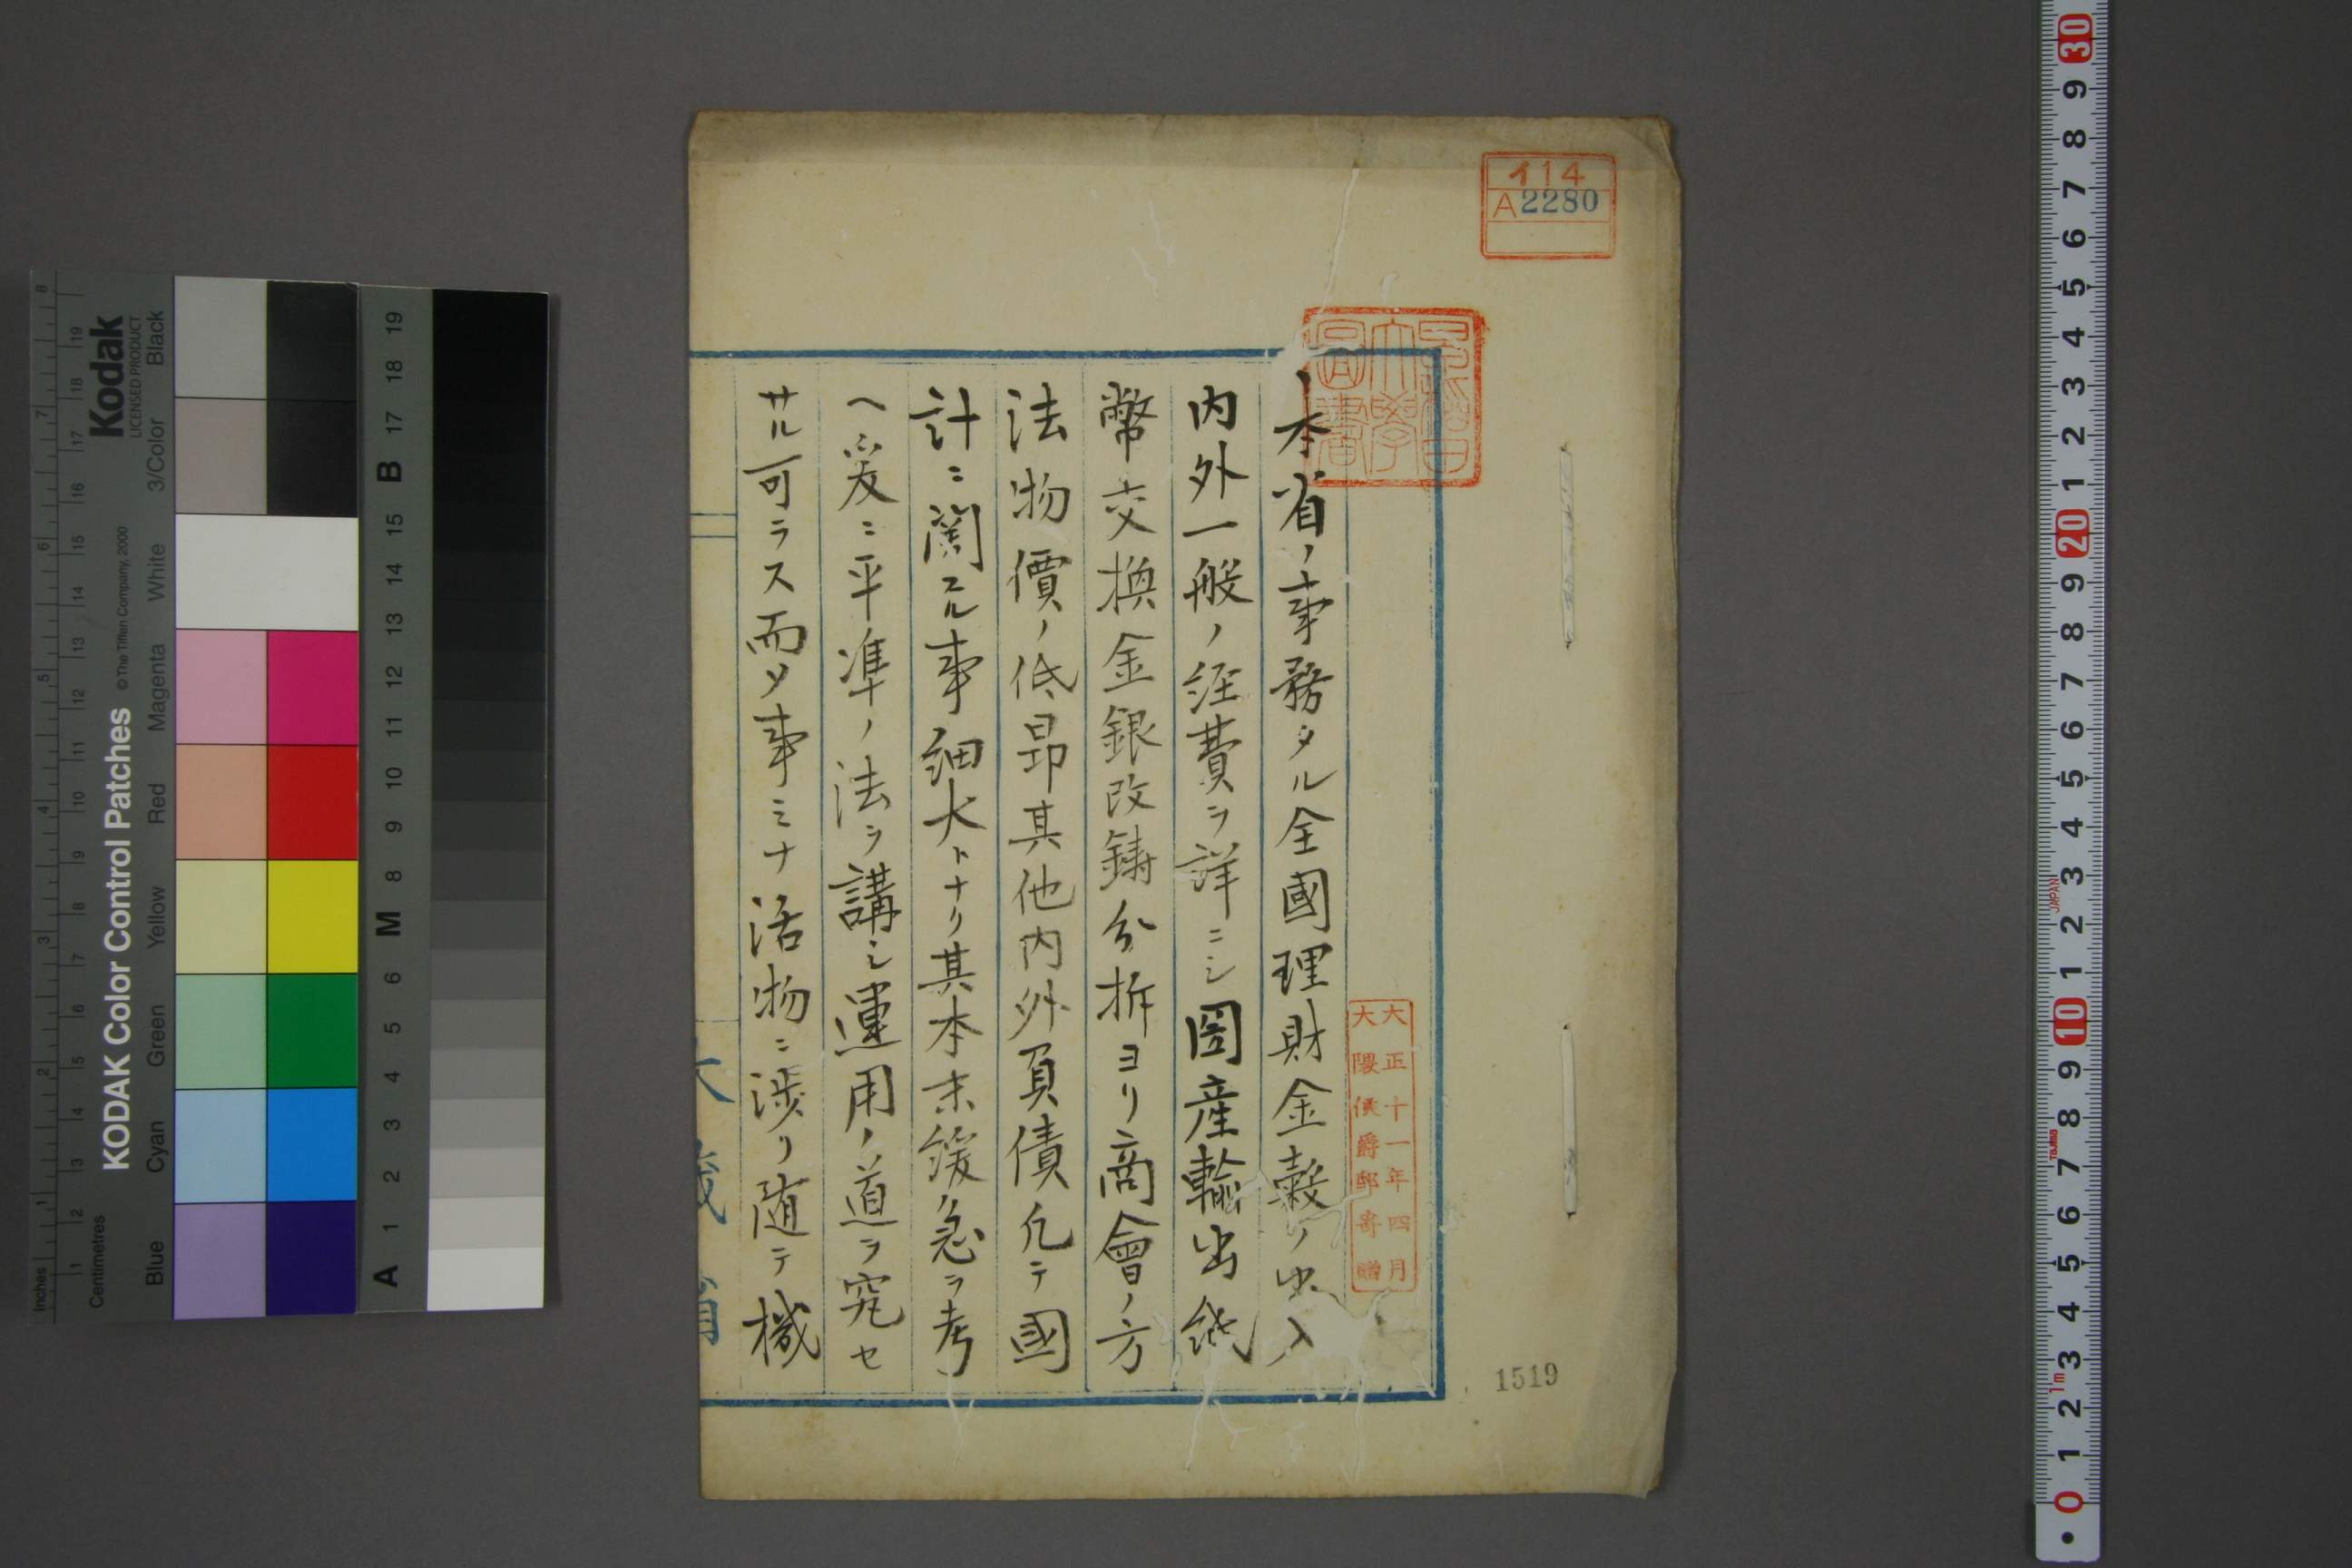 イ14
A2280
早稲田大學圖書
大正十一年四月
大隈侯爵邸寄贈
本省ノ事務タル全國理財金穀ノ出入
内外一般ノ經費ヲ詳ニシ圀産輸出紙
幣交換金銀改鋳分拆ヨリ商會ノ方
法物價ノ低昂其他内外負債凡テ國
計ニ関スル事細大トナリ其本末緩急ヲ考
ヘ爰ニ平準ノ法ヲ講シ運用ノ道ヲ究セ
サル可ラス而メ事ミナ活物ニ渉リ随テ機
大蔵省
1519
KODAK Color Control Patches
© The Tiffen Company, 2000
Kodak
LICENSED PRODUCT
Inches
1 2 3 4 5 6 7 8
Centimetres
1 2 3 4 5 6 7 8 9 10 11 12 13 14 15 16 17 18 19
Blue Cyan Green Yellow Red Magenta White 3/Color Black
A 1 2 3 4 5 6 M 8 9 10 11 12 13 14 15 B 17 18 19
0 1 2 3 4 5 6 7 8 9 10 1 2 3 4 5 6 7 8 9 20 1 2 3 4 5 6 7 8 9 30
1m
TAJIMA
JAPAN